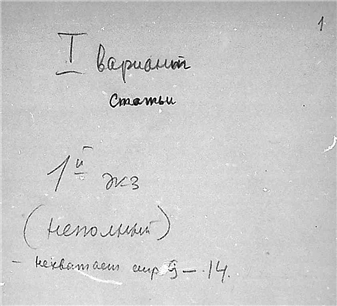 1
I вариант
статьи
1й экз
(неполный)
- нехватает стр 9 - 14.